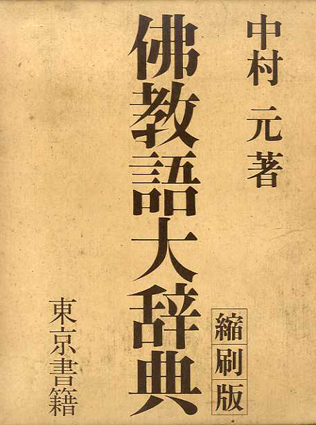 中村 元著
佛教語大辞典
縮刷版
東京書籍